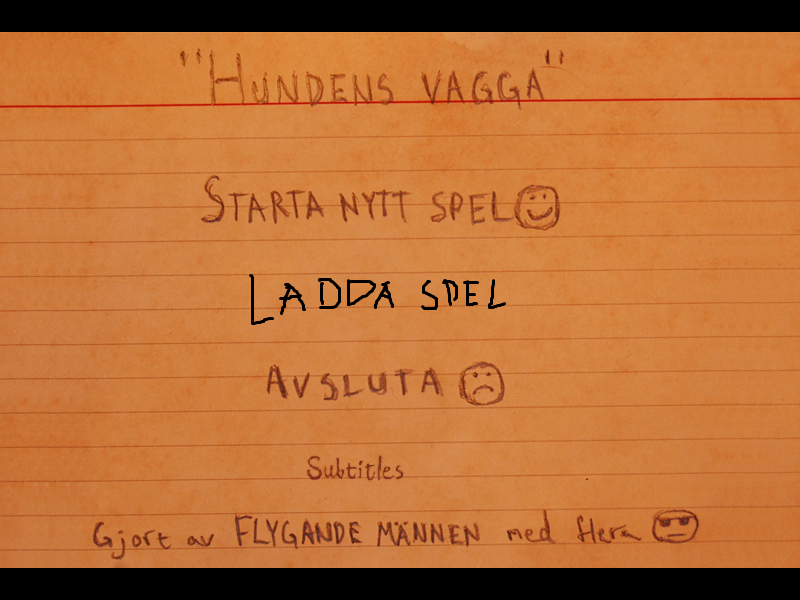 "HUNDENS VAGGA"
STARTA NYTT SPEL
LADDA SPEL
AVSLUTA
Subtitles
Gjort av FLYGANDE MÄNNEN med flera